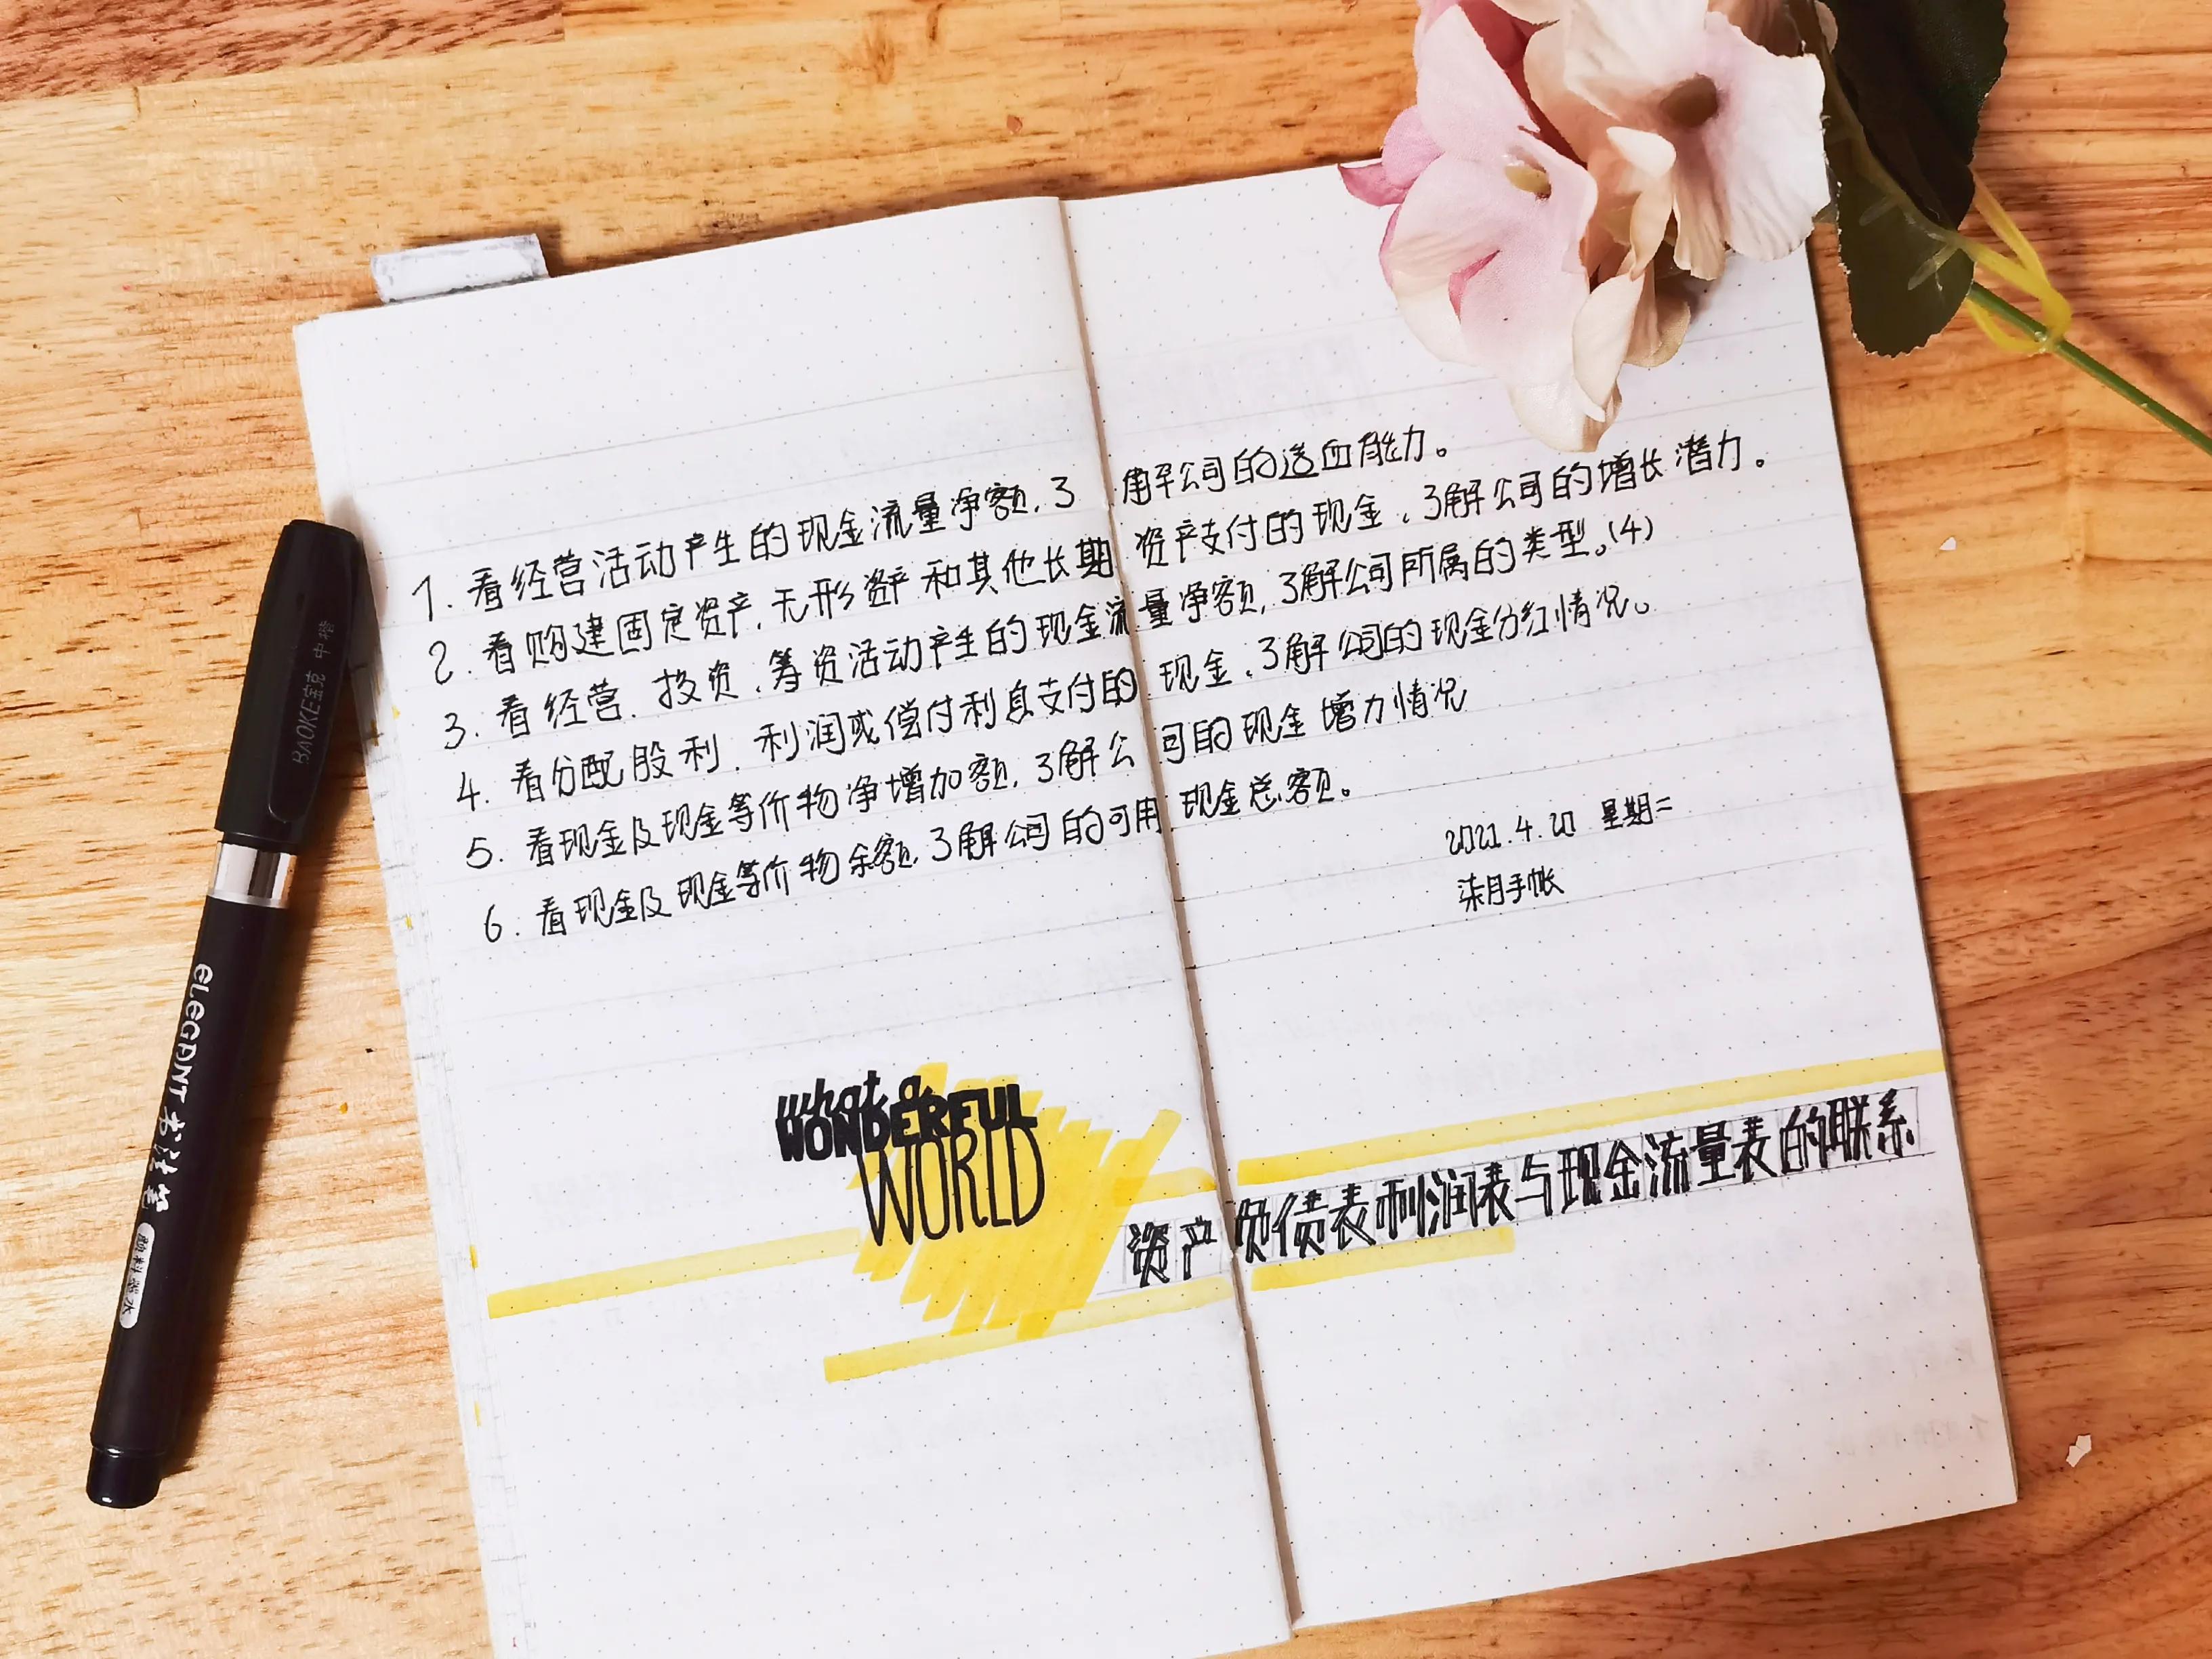 1. 看经营活动产生的现金流量净额,了解公司的造血能力。
2. 看购建固定资产、无形资产和其他长期资产支付的现金,了解公司的增长潜力。
3. 看经营、投资、筹资活动产生的现金流量净额,了解公司所属的类型。(4)
4. 看分配股利、利润或偿付利息支付的现金,了解公司的现金分红情况。
5. 看现金及现金等价物净增加额,了解公司的现金增力情况
6. 看现金及现金等价物余额,了解公司的可用现金总额。
2021.4.20 星期二
柒月手帐
what a
WONDERFUL
WORLD
资产负债表利润表与现金流量表的联系
BAOKE宝克 中楷
ELEGANT 书法笔
颜料墨水